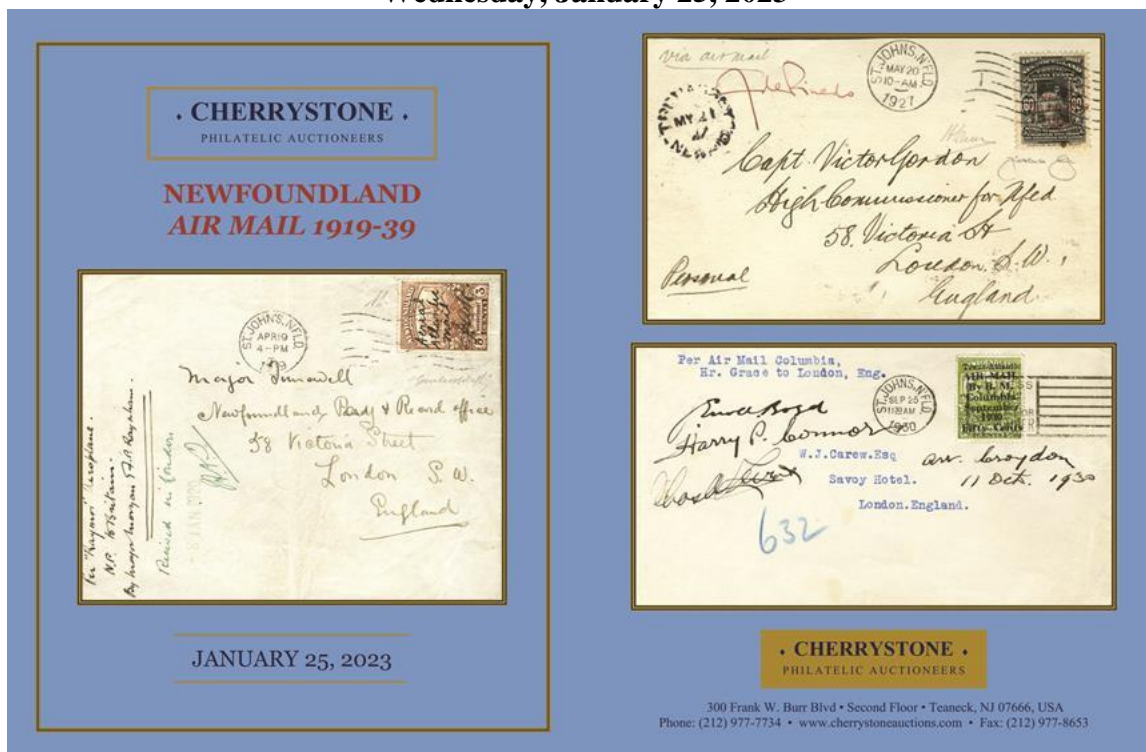 Wednesday, January 25, 2023
· CHERRYSTONE ·
PHILATELIC AUCTIONEERS
NEWFOUNDLAND
AIR MAIL 1919-39
ST. JOHN'S, N'FLD.
APR 19
4-PM
Major
Newfoundland Pay & Record office
58 Victoria Street
London S. W.
England
Per "Raymor" Aeroplane.
N.F. to Britain.
By Major Morgan
Received in London
JANUARY 25, 2023
via air mail
ST. JOHN'S, N'FLD
MAY 20
10-AM
1927
MY 21
27
Capt. Victor Gordon
High Commissioner for Nfld
58. Victoria St
London. S.W.,
England
Personal
Per Air Mail Columbia,
Hr. Grace to London, Eng.
ST. JOHN'S, N'FLD
SEP 25
1930
Trans-Atlantic
AIR MAIL
By B. M.
Columbia
September
1930
Fifty Cents
Harry P. Connor
W.J.Carew.Esq
Savoy Hotel.
London.England.
arr. Croydon
11 Oct. 1930
632
· CHERRYSTONE ·
PHILATELIC AUCTIONEERS
300 Frank W. Burr Blvd • Second Floor • Teaneck, NJ 07666, USA
Phone: (212) 977-7734 • www.cherrystoneauctions.com • Fax: (212) 977-8653